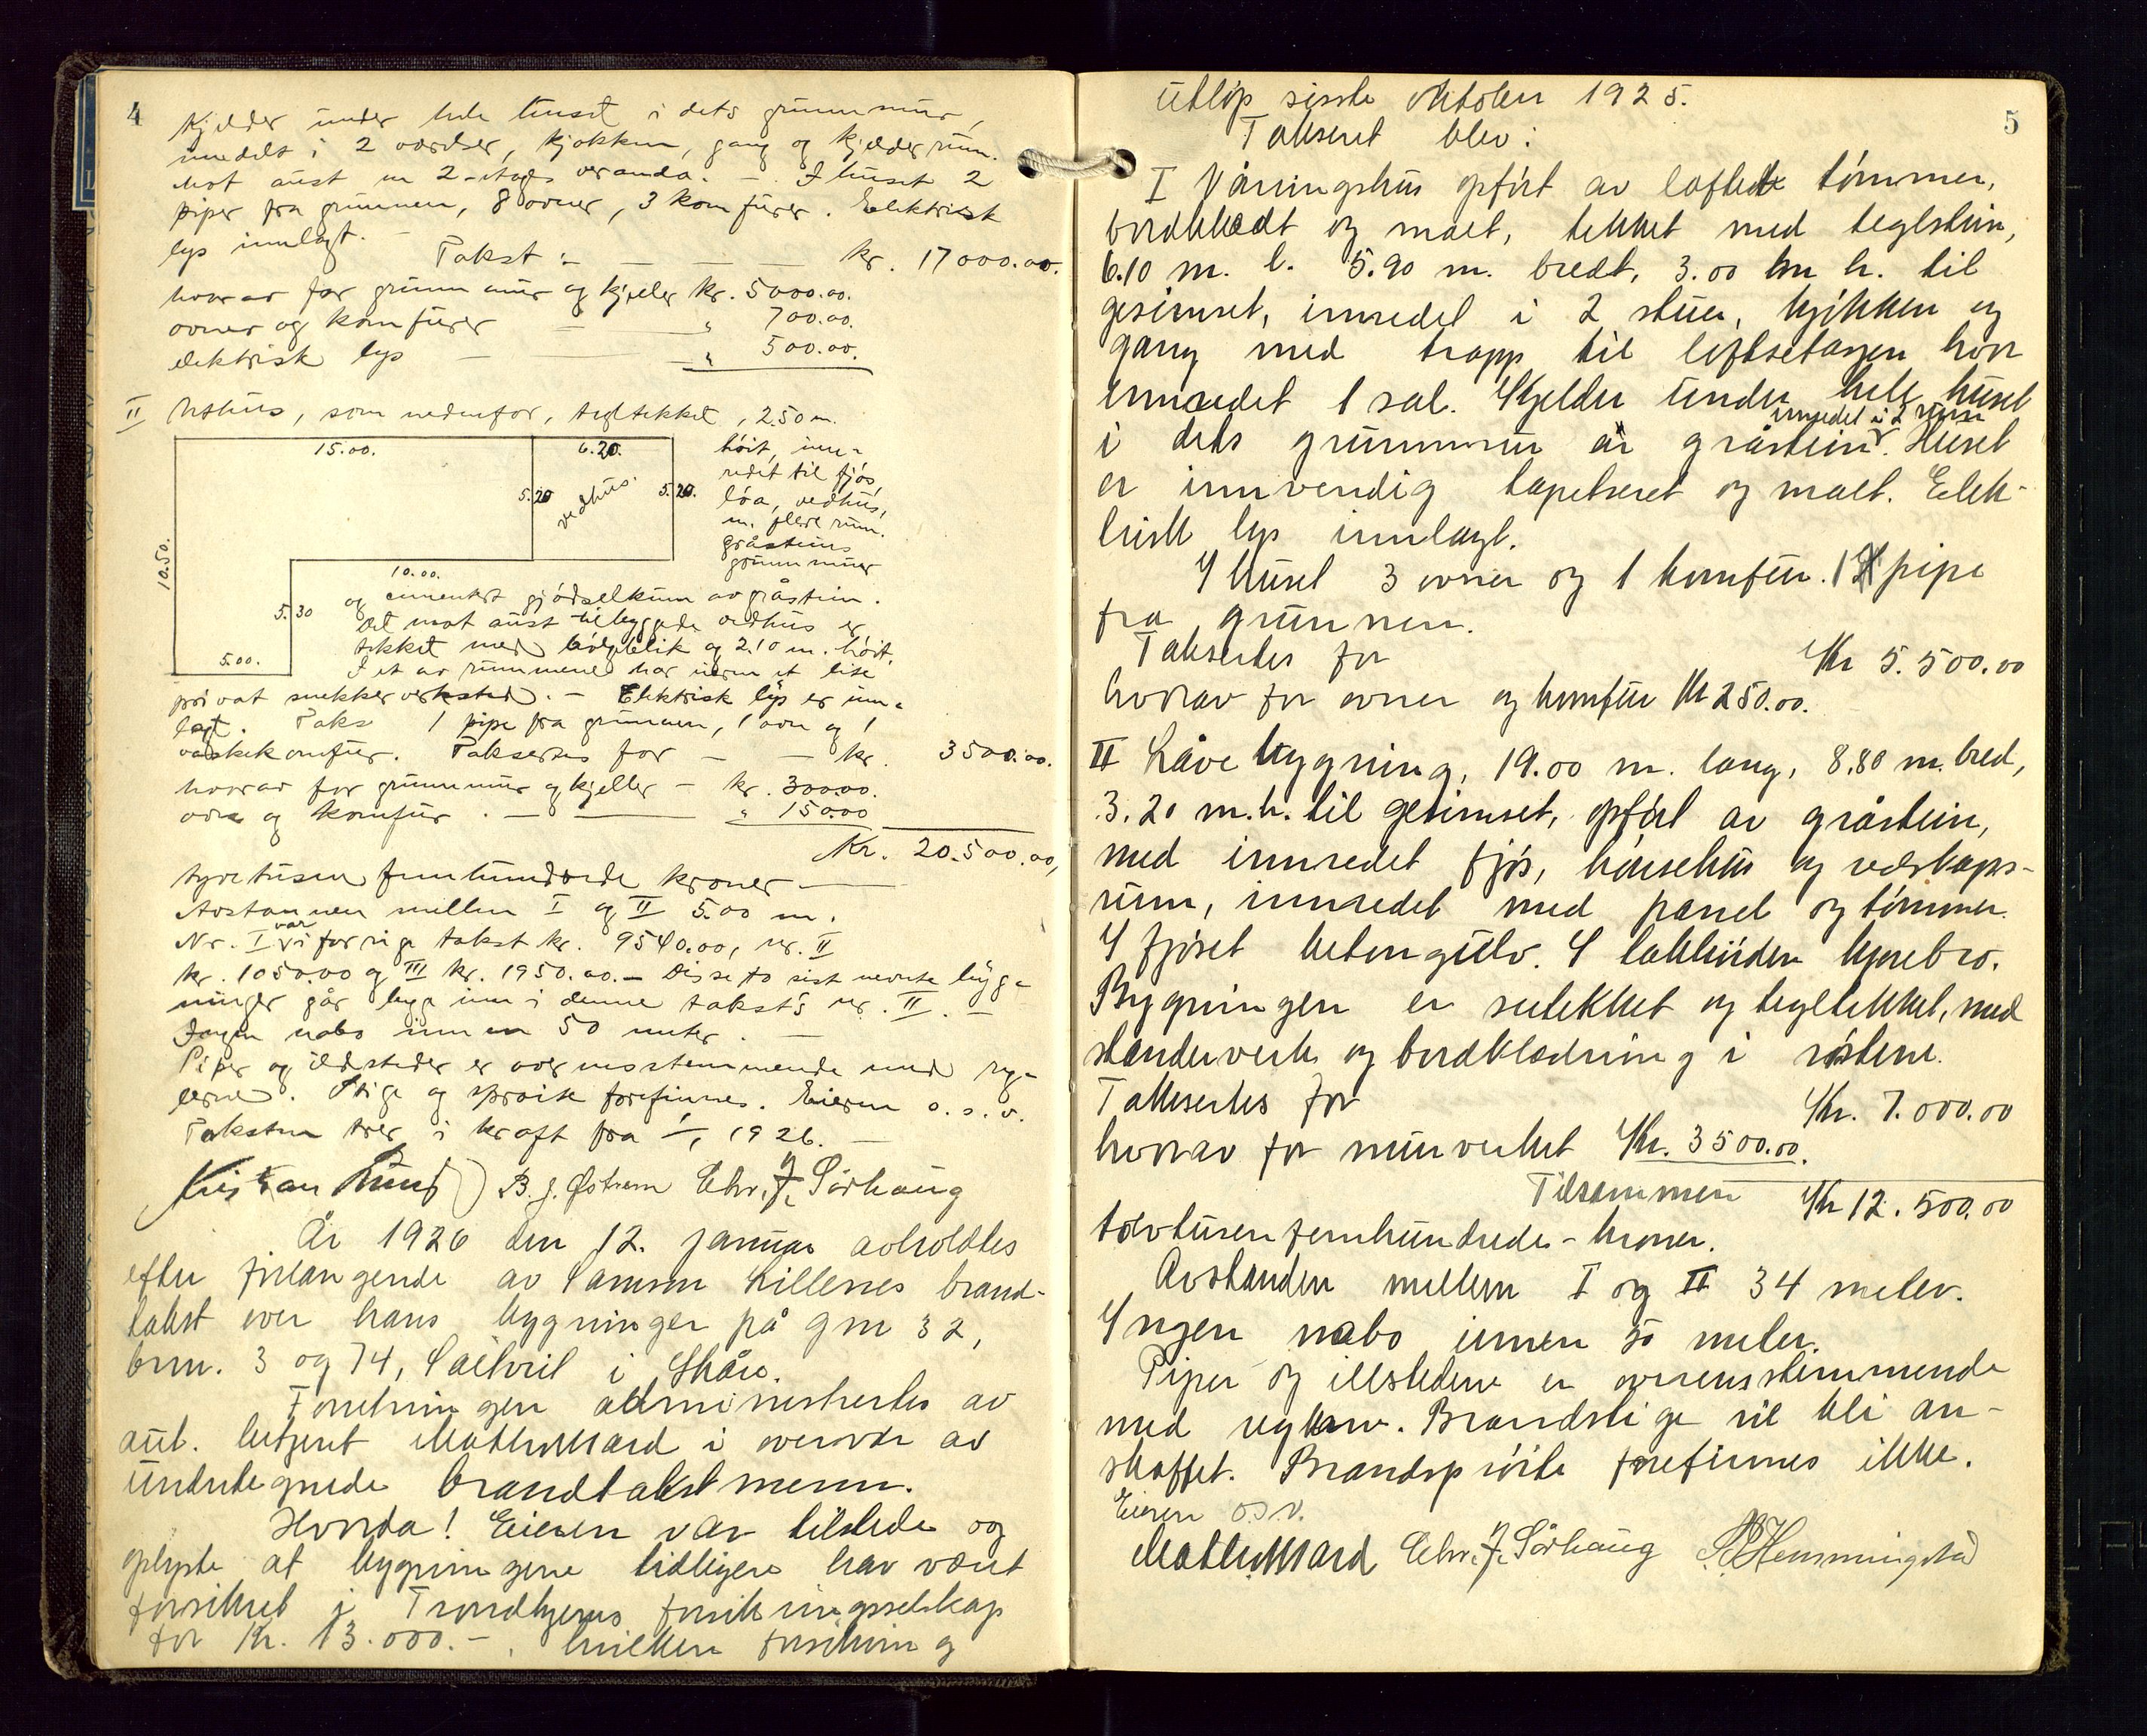 4
Kjelder under hele huset i dets grunnmur,
innredet i 2 værelser, kjøkken, gang og kjelderrum.
Mot aust en 2-etages veranda. – I huset 2
piper fra grunnen, 8 ovner, 3 komfurer. Elektrisk
lys innlagt. –
Takst: – — — — kr. 17000.00.
hvorav for grunnmur og kjeller kr. 5000.00.
ovner og komfurer — — " 700.00.
elektrisk lys — — " 500.00.
II Uthus, som nedenfor, tegltekket, 2.50 m.
15.00.
6.20.
5.20
vedhus.
5.20.
10.50.
10.00.
5.30
5.00.
høit, inn-
redet til fjøs,
løa, vedhus,
m. flere rum.
gråsteins
grunnmur
og cementert gjødselkum av gråstein.
Det mot aust tilbyggede vedhus er
tekket med bølgeblik og 2.10 m. høit.
I et av rummene har eieren et lite
privat snekkerverksted. – Elektrisk lys er inn-
lagt. Taks 1 pipe fra grunnen, 1 ovn og 1
vaskekomfur. Takseres for — — kr. 3500.00.
hvorav for grunnmur og kjeller – kr. 300.00.
ovn og komfur. — — " 150.00
Kr. 20.500.00,
tyvetusen femhundrede kroner —
Avstannen mellem I og II 5.00 m.
Nr. I var i forrige takst kr. 9540.00, nr. II
kr. 1050.00 og III kr. 1950.00. – Disse to sist nevnte byg-
ninger går begge inn i denne takst's nr. II. –
Ingen nabo innen 50 meter. —
Piper og ildsteder er overensstemmende med reg-
lerne. Stige og sprøite forefinnes. Eieren o.s.v.
Taksten trer i kraft fra 1/1 1926. —
Kristian Lund B. J. Østrem Chr. J. Sørhaug
År 1926 den 12. januar avholdtes
efter forlangende av Samson Lillenes brand-
takst over hans bygninger på gnr 32,
brnr. 3 og 74, Saltveit i Skåre.
Forretningen administrertes av
aut. betjent i overvær av
undertegnede brandtakstmenn.
Hvorda! Eieren var tilstede og
oplyste at bygningene tidligere har været
forsikret i Trondhjems forsikringsselskap
for Kr. 13.000.–. hvilken forsikring
5
utløp siste oktober 1925.
Taksert blev:
I Våningshus opført av laftede tømmer,
bordklædt og malt, tekket med teglstein,
6.10 m. l. 5.90 m. bredt, 3.00 m h. til
gesimset, innredet i 2 stuer, kjøkken og
gang med trapp til loftsetagen hvor
innredet 1 sal. Kjelder under hele huset
i dets grunnmur av gråstein innredet i 2 rum. Huset
er innvendig tapetseret og malt. Elek-
trisk lys innlagt.
I huset 3 ovner og 1 komfur. 1 pipe
fra grunnen.
Taksertes for Kr 5.500.00
hvorav for ovner og komfur Kr 250.00.
II Låvebygning, 19.00 m. lang, 8.80 m. bred,
3.20 m.h. til gesimset, opført av gråstein,
med innredet fjøs, hønsehus og redskaps-
rum, innredet med panel og tømmer.
I fjøset betongulv. I låkkuden kjørebro.
Bygningen er sutekket og tegltekket, med
standerverk og bordklædning i røstene.
Taksertes for Kr. 7.000.00
hvorav for murverket Kr. 3500.00.
Tilsammen Kr 12.500.00
tolvtusenfemhundrede – kroner.
Avstanden mellem I og II 34 meter.
Ingen nabo innen 50 meter.
Piper og illstedene er overensstemmende
med reglene. Brandstige vil bli an-
skaffet. Brandsprøite forefinnes ikke.
Eieren o.s.v.
Chr. J. Sørhaug Hemmingstad